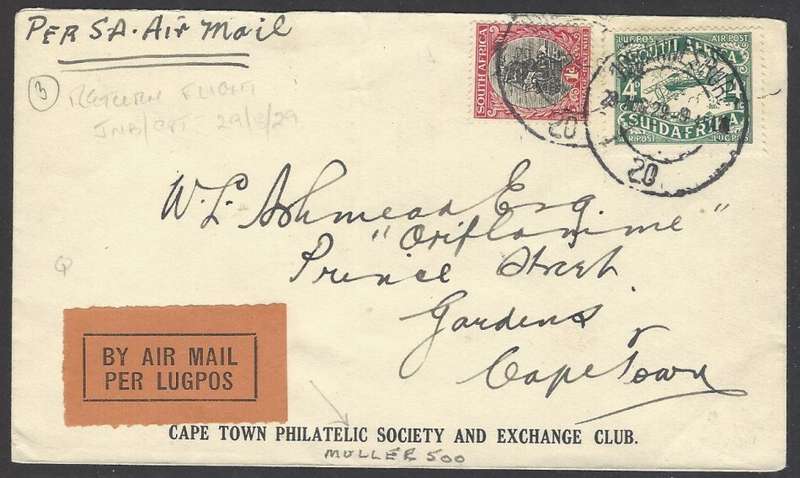 Per SA. Air Mail
SOUTH AFRICA
1D
POSTAGE REVENUE
LUGPOS AIR POST
SOUTH AFRICA
4D
SUIDAFRIKA
AIRPOST LUGPOS
20
20
3
RETURN FLIGHT
JNB/CPT 29/8/29
W. L. Ashmead Esq
"Oriflamme"
Prince Street
Gardens
Cape Town
BY AIR MAIL
PER LUGPOS
CAPE TOWN PHILATELIC SOCIETY AND EXCHANGE CLUB.
MULLER 500